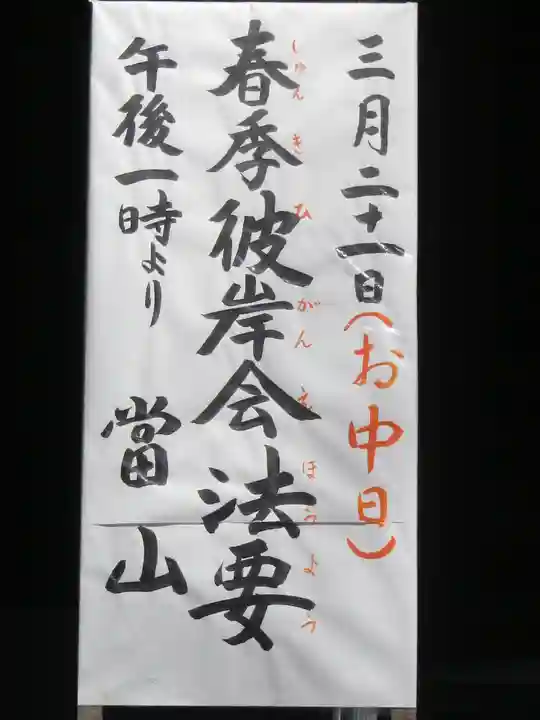 三月二十一日(お中日)
春季彼岸会法要
しゅんきひがんえほうよう
午後一時より 當山